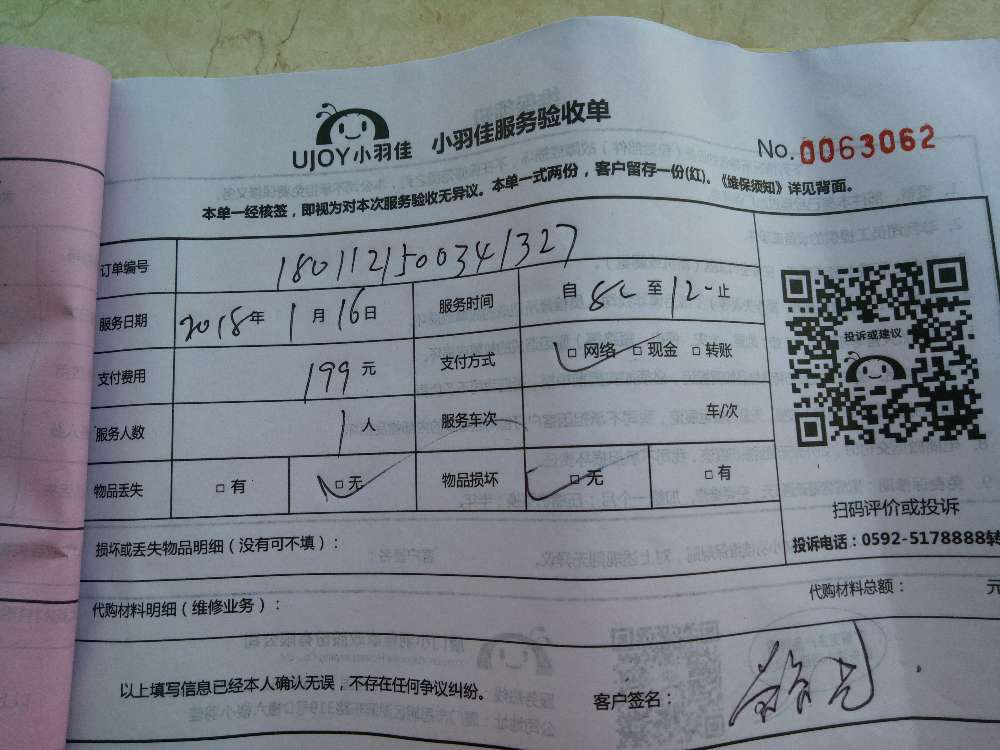 UJOY小羽佳 小羽佳服务验收单
No.0063062
本单一经核签，即视为对本次服务验收无异议。本单一式两份，客户留存一份(红)。《维保须知》详见背面。
订单编号 180112150034 1327
服务日期 2018年1月16日 服务时间 自8:至12:止
支付费用 199元 支付方式 □网络 □现金 □转账
服务人数 1人 服务车次 车/次
物品丢失 □有 □无 物品损坏 □无 □有
投诉或建议
扫码评价或投诉
投诉电话：0592-5178888转
损坏或丢失物品明细（没有可不填）：
代购材料明细（维修业务）： 代购材料总额： 元
以上填写信息已经本人确认无误，不存在任何争议纠纷。 客户签名：